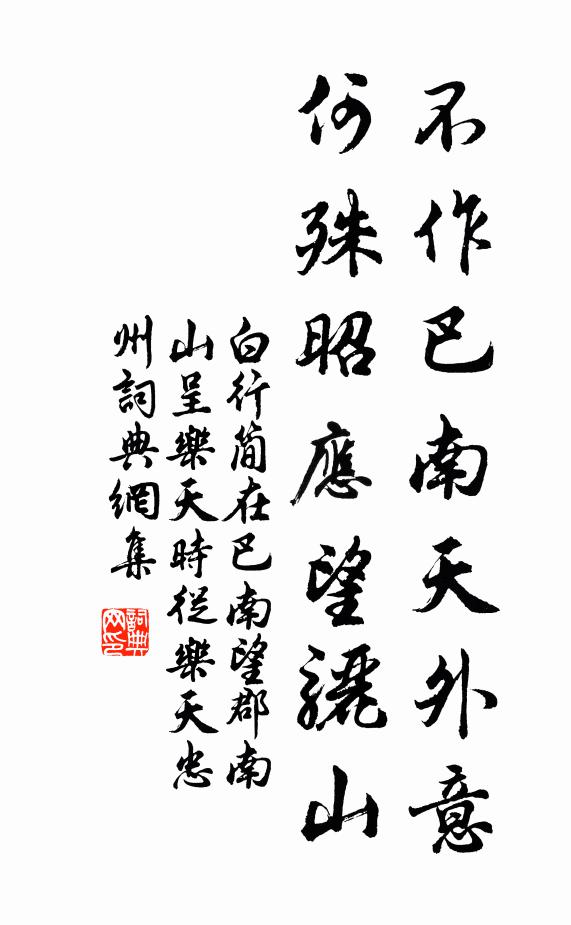 不作巴南天外意
何殊昭應望驪山
白行简在巴南望郡南
山呈樂天時從樂天忠
州詞典網集
詞典